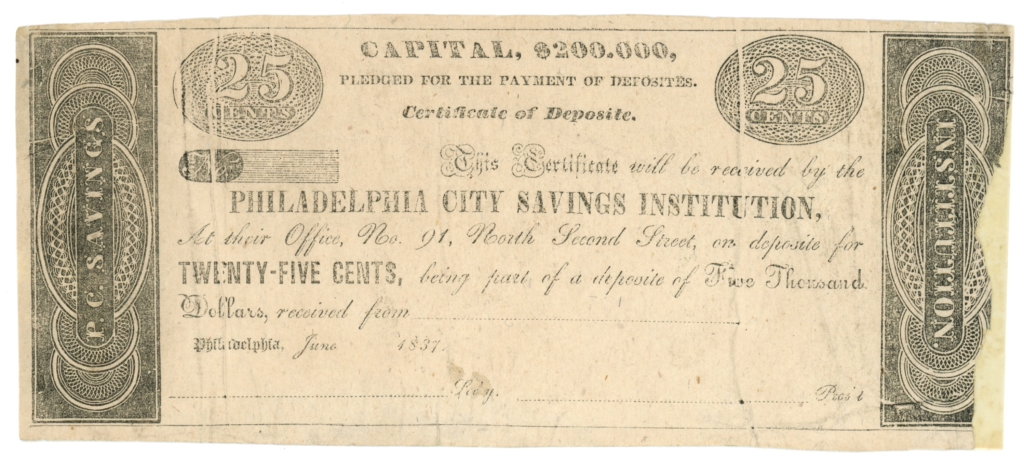 P. C. SAVINGS
25
CENTS
CAPITAL, $200.000,
PLEDGED FOR THE PAYMENT OF DEPOSITES.
Certificate of Deposite.
25
CENTS
This Certificate will be received by the
PHILADELPHIA CITY SAVINGS INSTITUTION,
At their Office, No. 91, North Second Street, on deposite for
TWENTY-FIVE CENTS, being part of a deposite of Five Thousand
Dollars, received from
Philadelphia, June 1837.
Sec'y. Pres't
INSTITUTION